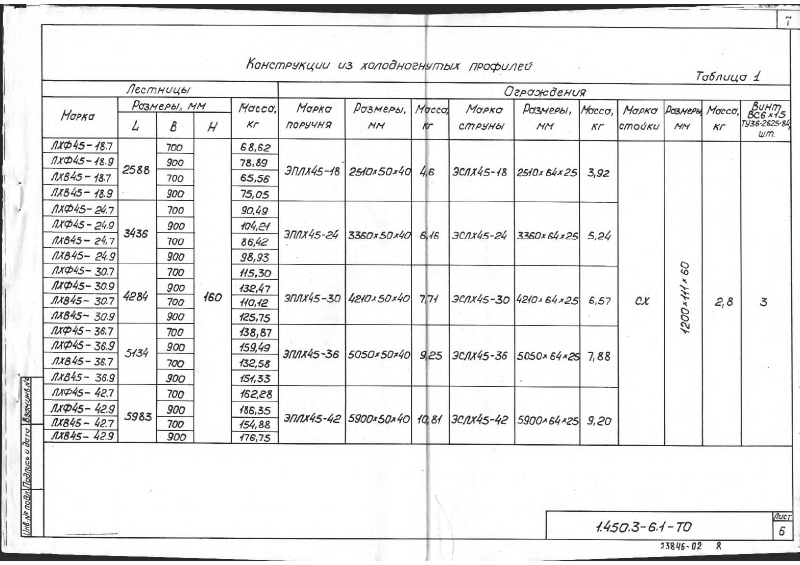 7
Конструкции из холодногнутых профилей
Таблица 1
Лестницы Ограждения
Марка Размеры, мм Масса, кг Марка поручня Размеры, мм Масса, кг Марка струны Размеры, мм Масса, кг Марка стойки Размеры, мм Масса, кг Винт ВС6×15 ТУ36-2625-84, шт.
L B H
ЛХФ45-18.7 2588 700 160 68,62 ЭПЛХ45-18 2510×50×40 4,6 ЭСЛХ45-18 2510×64×25 3,92 СХ 1200×111×60 2,8 3
ЛХФ45-18.9 900 78,89
ЛХВ45-18.7 700 65,56
ЛХВ45-18.9 900 75,05
ЛХФ45-24.7 3436 700 90,49 ЭПЛХ45-24 3360×50×40 6,16 ЭСЛХ45-24 3360×64×25 5,24
ЛХФ45-24.9 900 104,21
ЛХВ45-24.7 700 86,42
ЛХВ45-24.9 900 98,93
ЛХФ45-30.7 4284 700 115,30 ЭПЛХ45-30 4210×50×40 7,71 ЭСЛХ45-30 4210×64×25 6,57
ЛХФ45-30.9 900 132,47
ЛХВ45-30.7 700 110,12
ЛХВ45-30.9 900 125,75
ЛХФ45-36.7 5134 700 138,87 ЭПЛХ45-36 5050×50×40 9,25 ЭСЛХ45-36 5050×64×25 7,88
ЛХФ45-36.9 900 159,49
ЛХВ45-36.7 700 132,58
ЛХВ45-36.9 900 151,33
ЛХФ45-42.7 5983 700 162,28 ЭПЛХ45-42 5900×50×40 10,81 ЭСЛХ45-42 5900×64×25 9,20
ЛХФ45-42.9 900 186,35
ЛХВ45-42.7 700 154,88
ЛХВ45-42.9 900 176,75
Инв.№ подл. Подпись и дата Взам.инв.№
1.450.3-6.1-ТО
Лист
6
23846-02 8